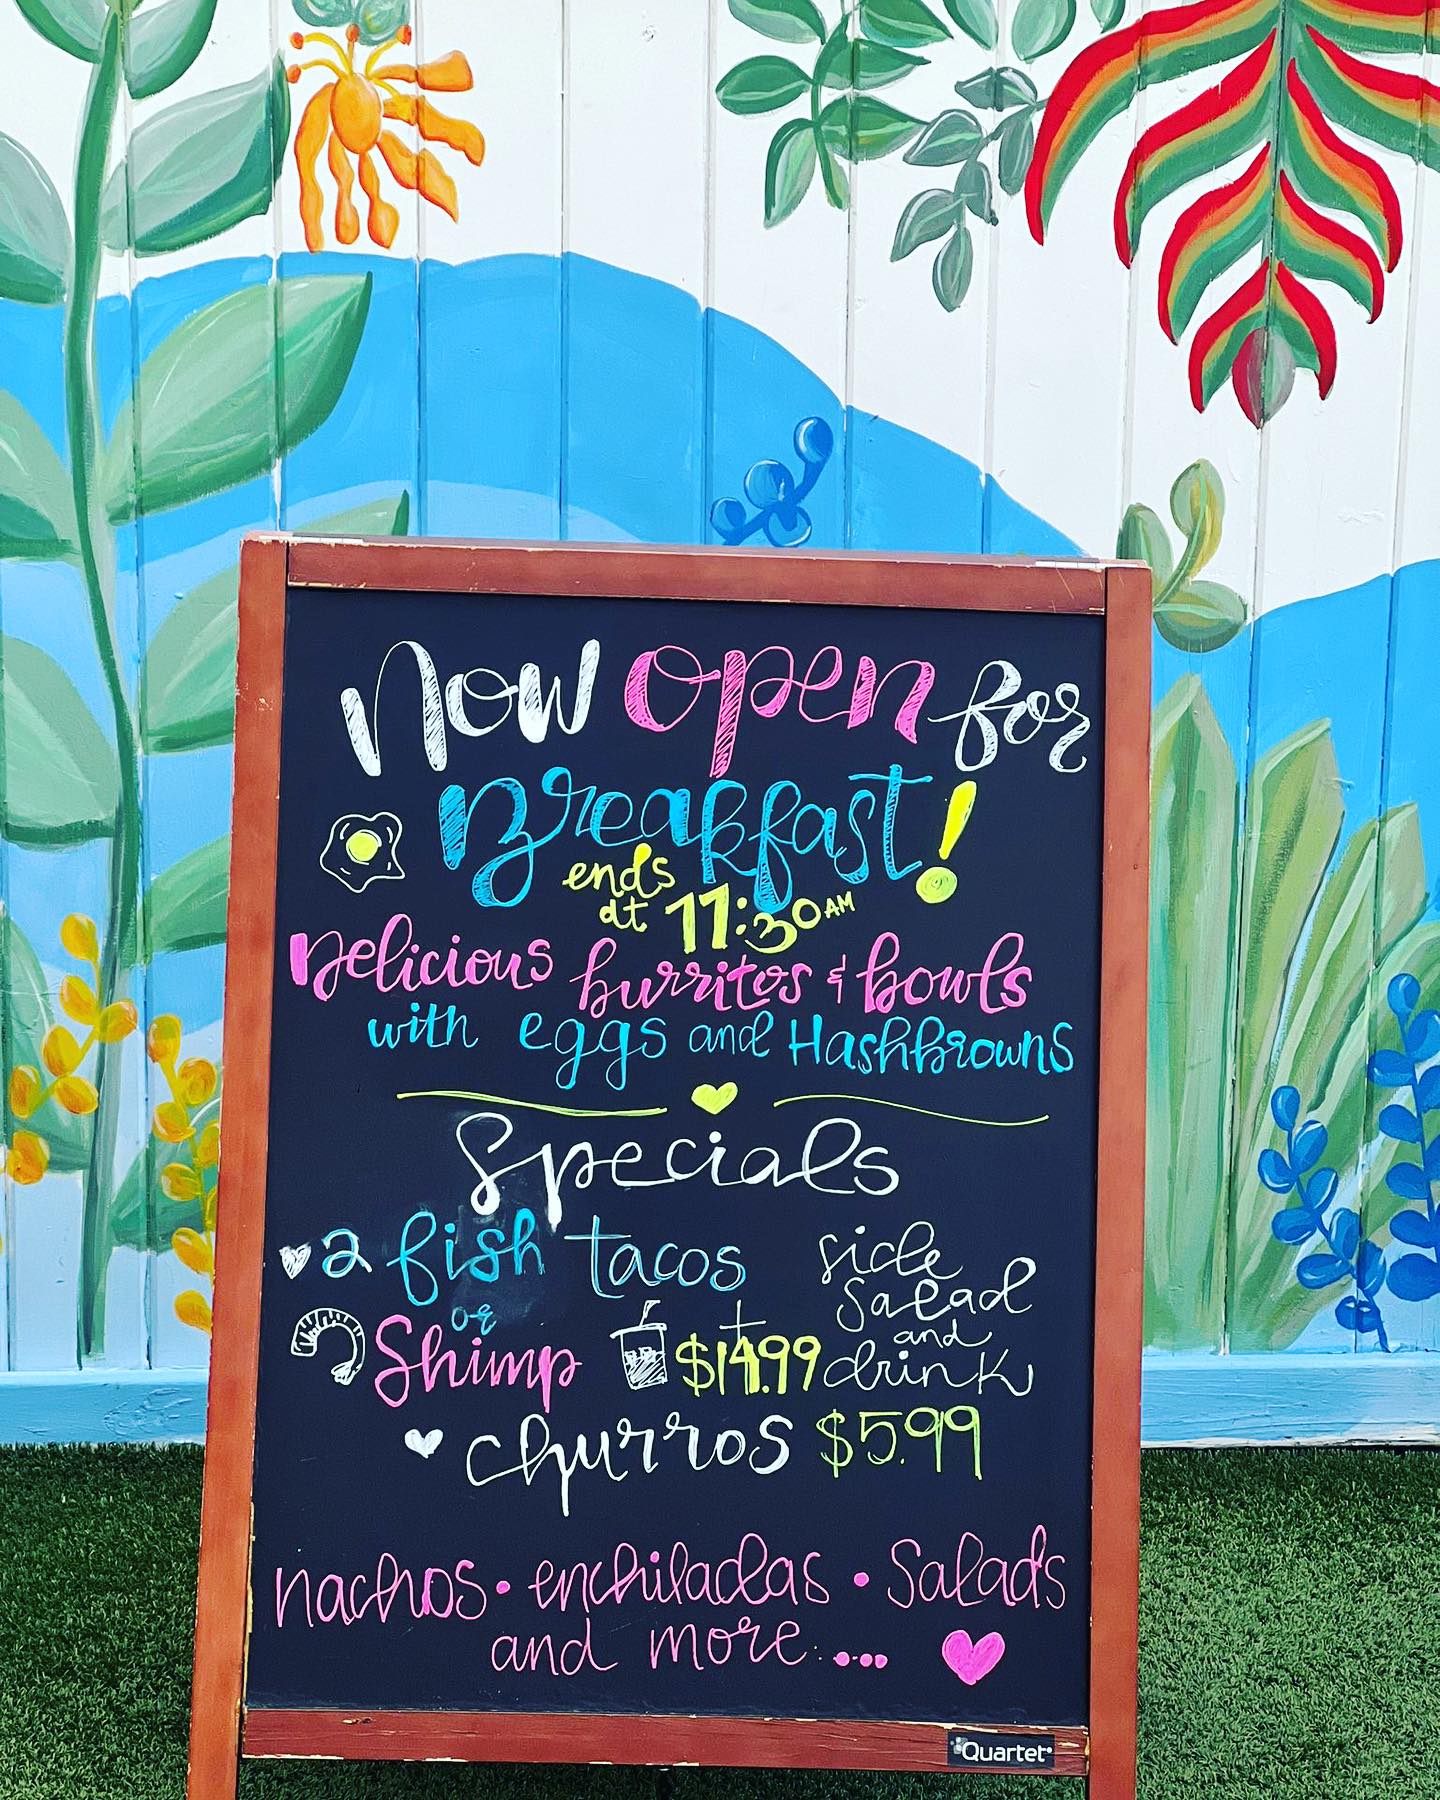 Now open for
Breakfast!
ends
at 11:30 AM
Delicious burritos & bowls
with eggs and Hashbrowns
Specials
2 fish tacos
or
Shimp
+
$14.99
side
salad
and
drink
churros $5.99
nachos • enchiladas • Salads
and more.....
Quartet